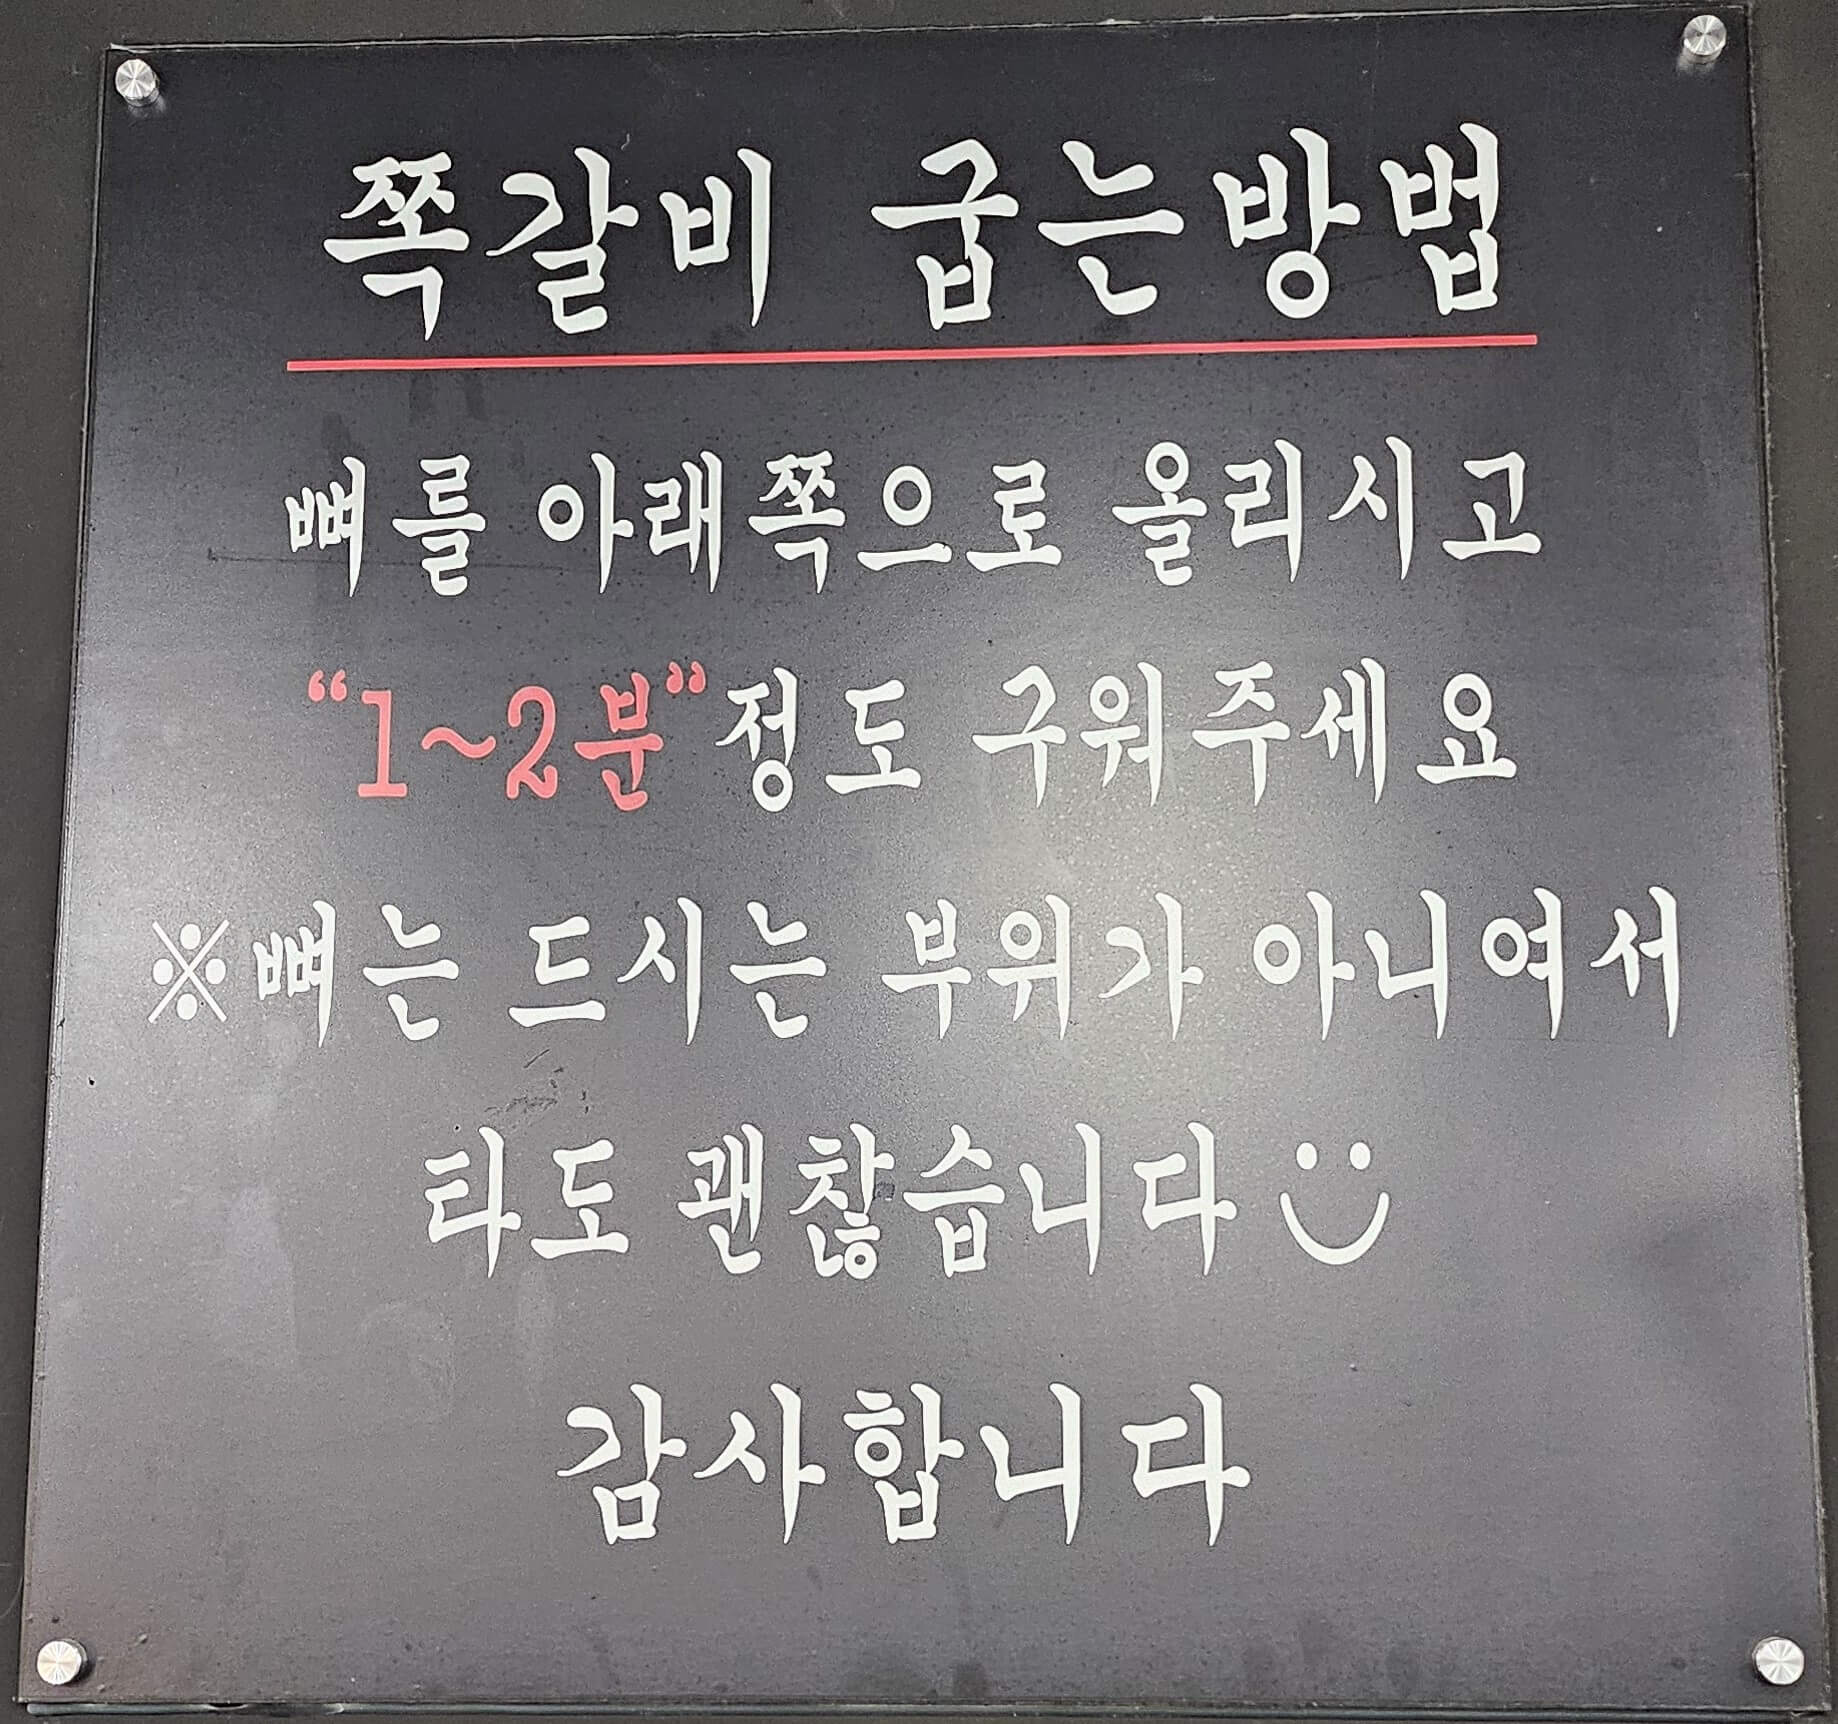 쪽갈비 굽는방법
뼈를 아래쪽으로 올리시고
“1~2분“정도 구워주세요
※뼈는 드시는 부위가 아니여서
타도 괜찮습니다
감사합니다